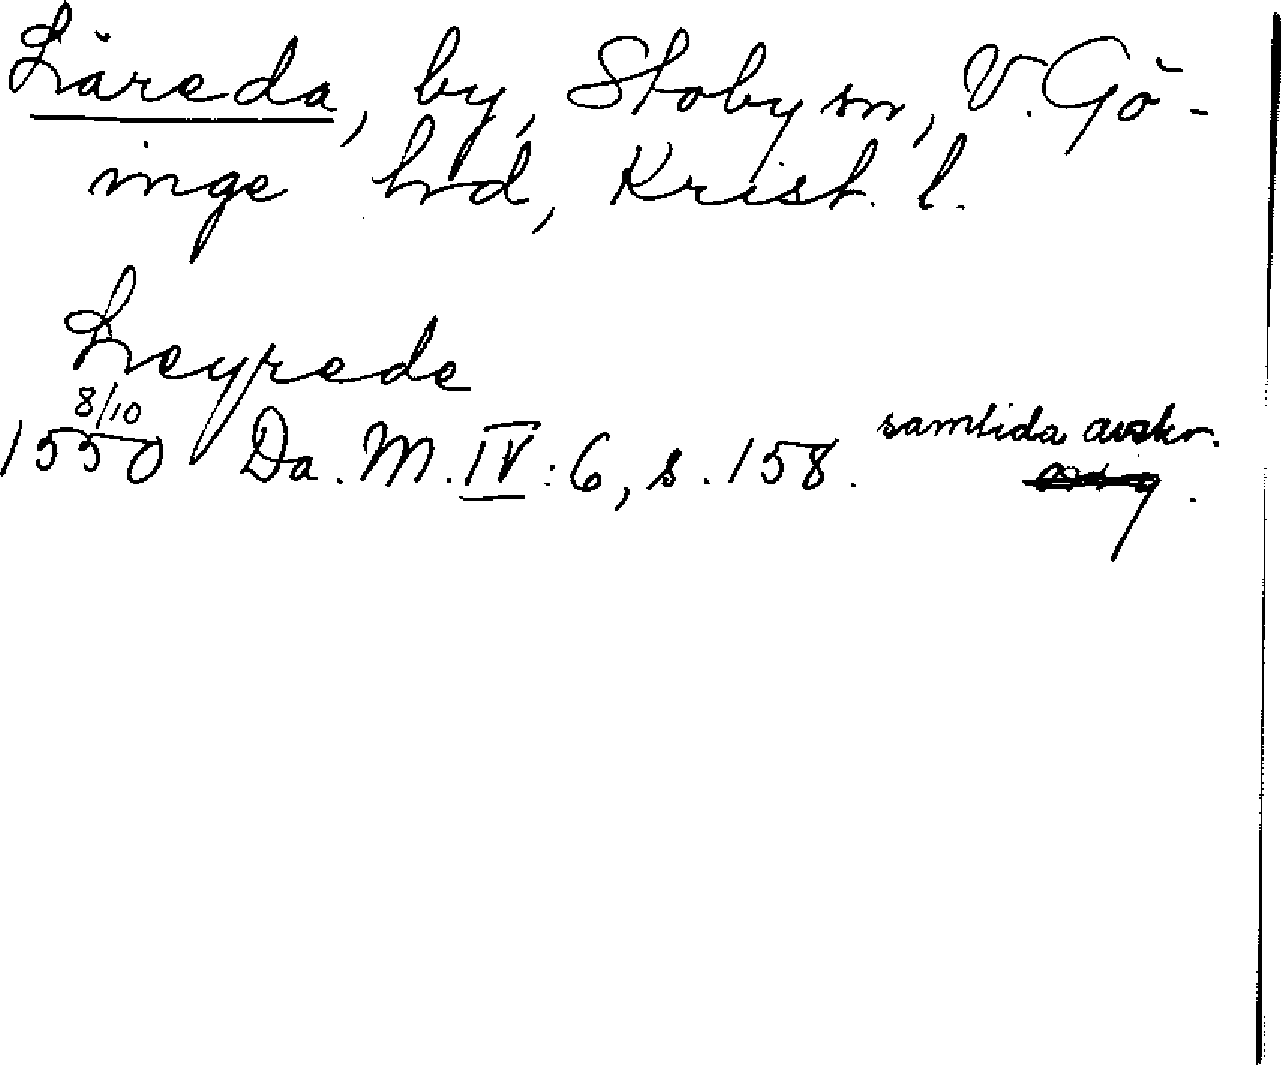 Läreda, by, Stoby sn, V. Gö-
inge hrd, Krist. l.
Leyrede
8/10
1550 Da. M. IV: 6, s. 158. samtida avskr.